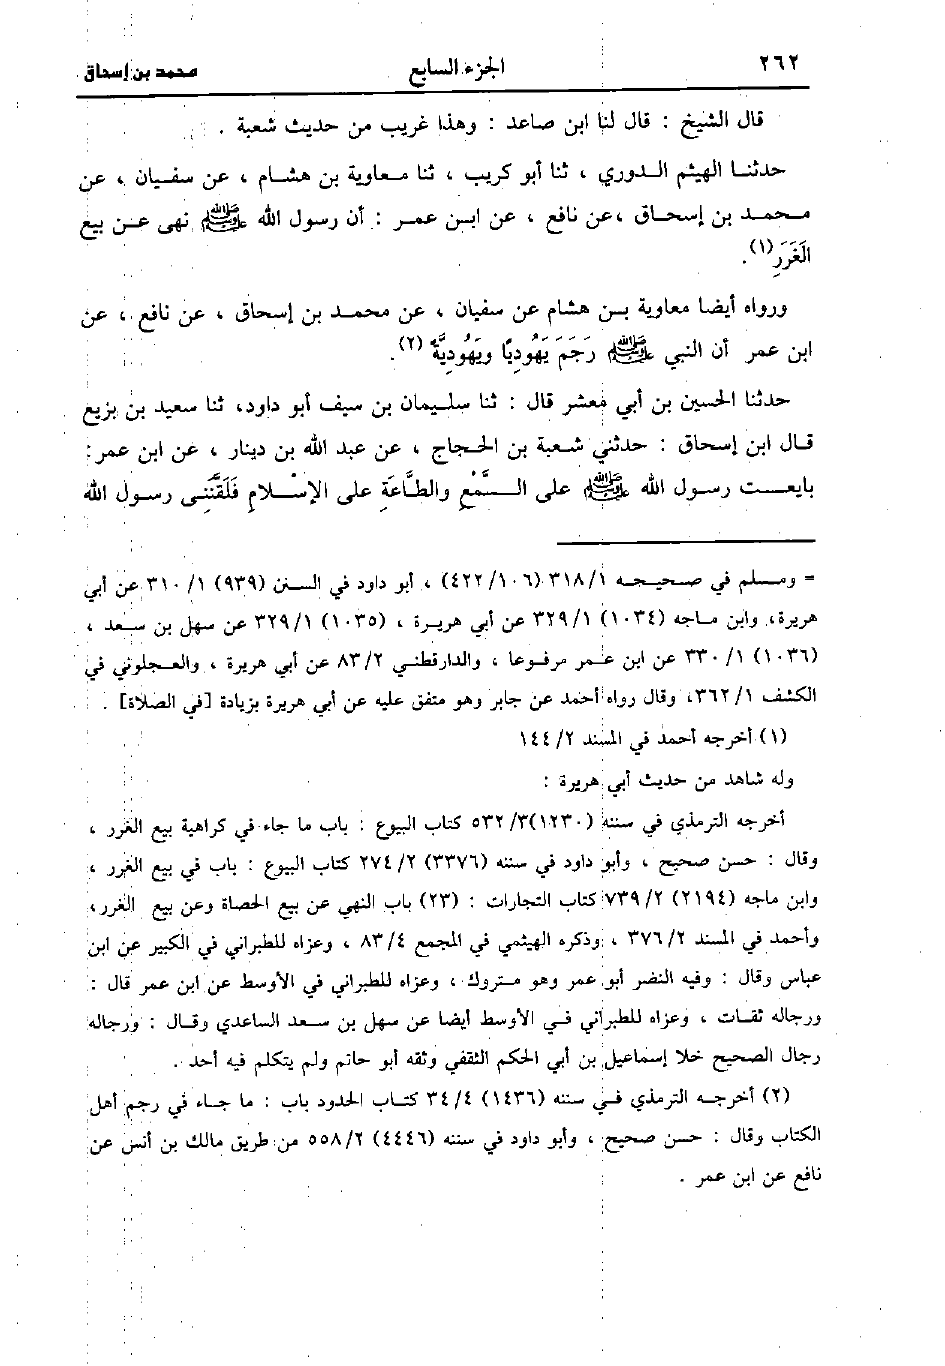 ٢٦٢ الجزء السابع محمد بن إسحاق
قال الشيخ : قال لنا ابن صاعد : وهذا غريب من حديث شعبة .
حدثنا الهيثم الدوري ، ثنا أبو كريب ، ثنا معاوية بن هشام ، عن سفيان ، عن
محمد بن إسحاق ،عن نافع ، عن ابن عمر : أن رسول الله ﷺ نهى عن بيع
الغَرَرِ(١).
ورواه أيضا معاوية بن هشام عن سفيان ، عن محمد بن إسحاق ، عن نافع ، عن
ابن عمر أن النبي ﷺ رَجَمَ يَهُودِيًا ويَهُودِيَّةً (٢).
حدثنا الحسين بن أبي معشر قال : ثنا سليمان بن سيف أبو داود، ثنا سعيد بن بزيع
قال ابن إسحاق : حدثني شعبة بن الحجاج ، عن عبد الله بن دينار ، عن ابن عمر:
بايعت رسول الله ﷺ على السَّمْعِ والطَّاعَةِ على الإسْلامِ فَلَقَّنَنِى رسول الله
= ومسلم في صحيحه ٣١٨/١ (٤٢٢/١٠٦) ، أبو داود في السنن (٩٣٩) ٣١٠/١ عن أبي
هريرة، وابن ماجه (١٠٣٤) ٣٢٩/١ عن أبي هريرة ، (١٠٣٥) ٣٢٩/١ عن سهل بن سعد ،
(١٠٣٦) ٣٣٠/١ عن ابن عمر مرفوعا ، والدارقطني ٨٣/٢ عن أبي هريرة ، والعجلوني في
الكشف ٣٦٢/١، وقال رواه أحمد عن جابر وهو متفق عليه عن أبي هريرة بزيادة [في الصلاة] .
(١) أخرجه أحمد في المسند ١٤٤/٢
وله شاهد من حديث أبي هريرة :
أخرجه الترمذي في سننه (١٢٣٠)٥٣٢/٣ كتاب البيوع : باب ما جاء في كراهية بيع الغرر ،
وقال : حسن صحيح ، وأبو داود في سننه (٣٣٧٦) ٢٧٤/٢ كتاب البيوع : باب في بيع الغرر ،
وابن ماجه (٢١٩٤) ٧٣٩/٢ كتاب التجارات : (٢٣) باب النهي عن بيع الحصاة وعن بيع الغرر،
وأحمد في المسند ٣٧٦/٢ ، وذكره الهيثمي في المجمع ٨٣/٤ ، وعزاه للطبراني في الكبير عن ابن
عباس وقال : وفيه النضر أبو عمر وهو متروك ، وعزاه للطبراني في الأوسط عن ابن عمر قال :
ورجاله ثقات ، وعزاه للطبراني في الأوسط أيضا عن سهل بن سعد الساعدي وقال : ورجاله
رجال الصحيح خلا إسماعيل بن أبي الحكم الثقفي وثقه أبو حاتم ولم يتكلم فيه أحد .
(٢) أخرجه الترمذي في سننه (١٤٣٦) ٣٤/٤ كتاب الحدود باب : ما جاء في رجم أهل
الكتاب وقال : حسن صحيح ، وأبو داود في سننه (٤٤٤٦) ٥٥٨/٢ من طريق مالك بن أنس عن
نافع عن ابن عمر .